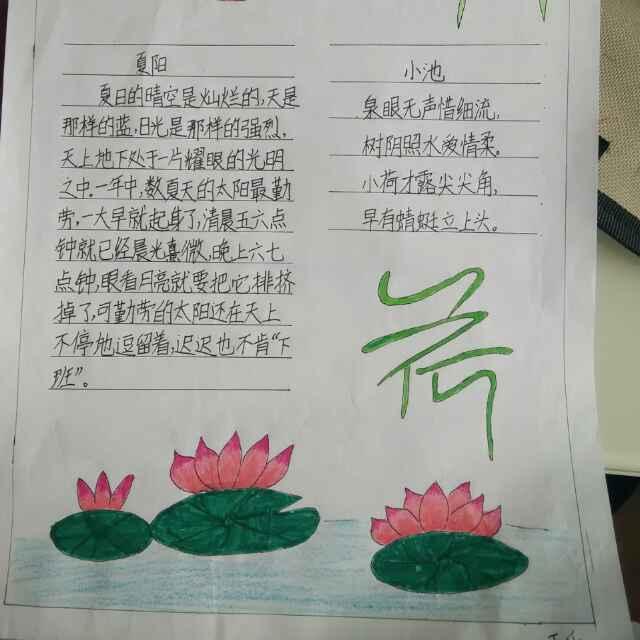 夏阳
夏日的晴空是灿烂的,天是
那样的蓝,日光是那样的强烈。
天上地下处于一片耀眼的光明
之中。一年中,数夏天的太阳最勤
劳,一大早就起身了,清晨五六点
钟就已经晨光熹微,晚上六七
点钟,眼看月亮就要把它排挤
掉了,可勤劳的太阳还在天上
不停地逗留着,迟迟也不肯“下
班”。
小池
泉眼无声惜细流,
树阴照水爱情柔。
小荷才露尖尖角,
早有蜻蜓立上头。
荷